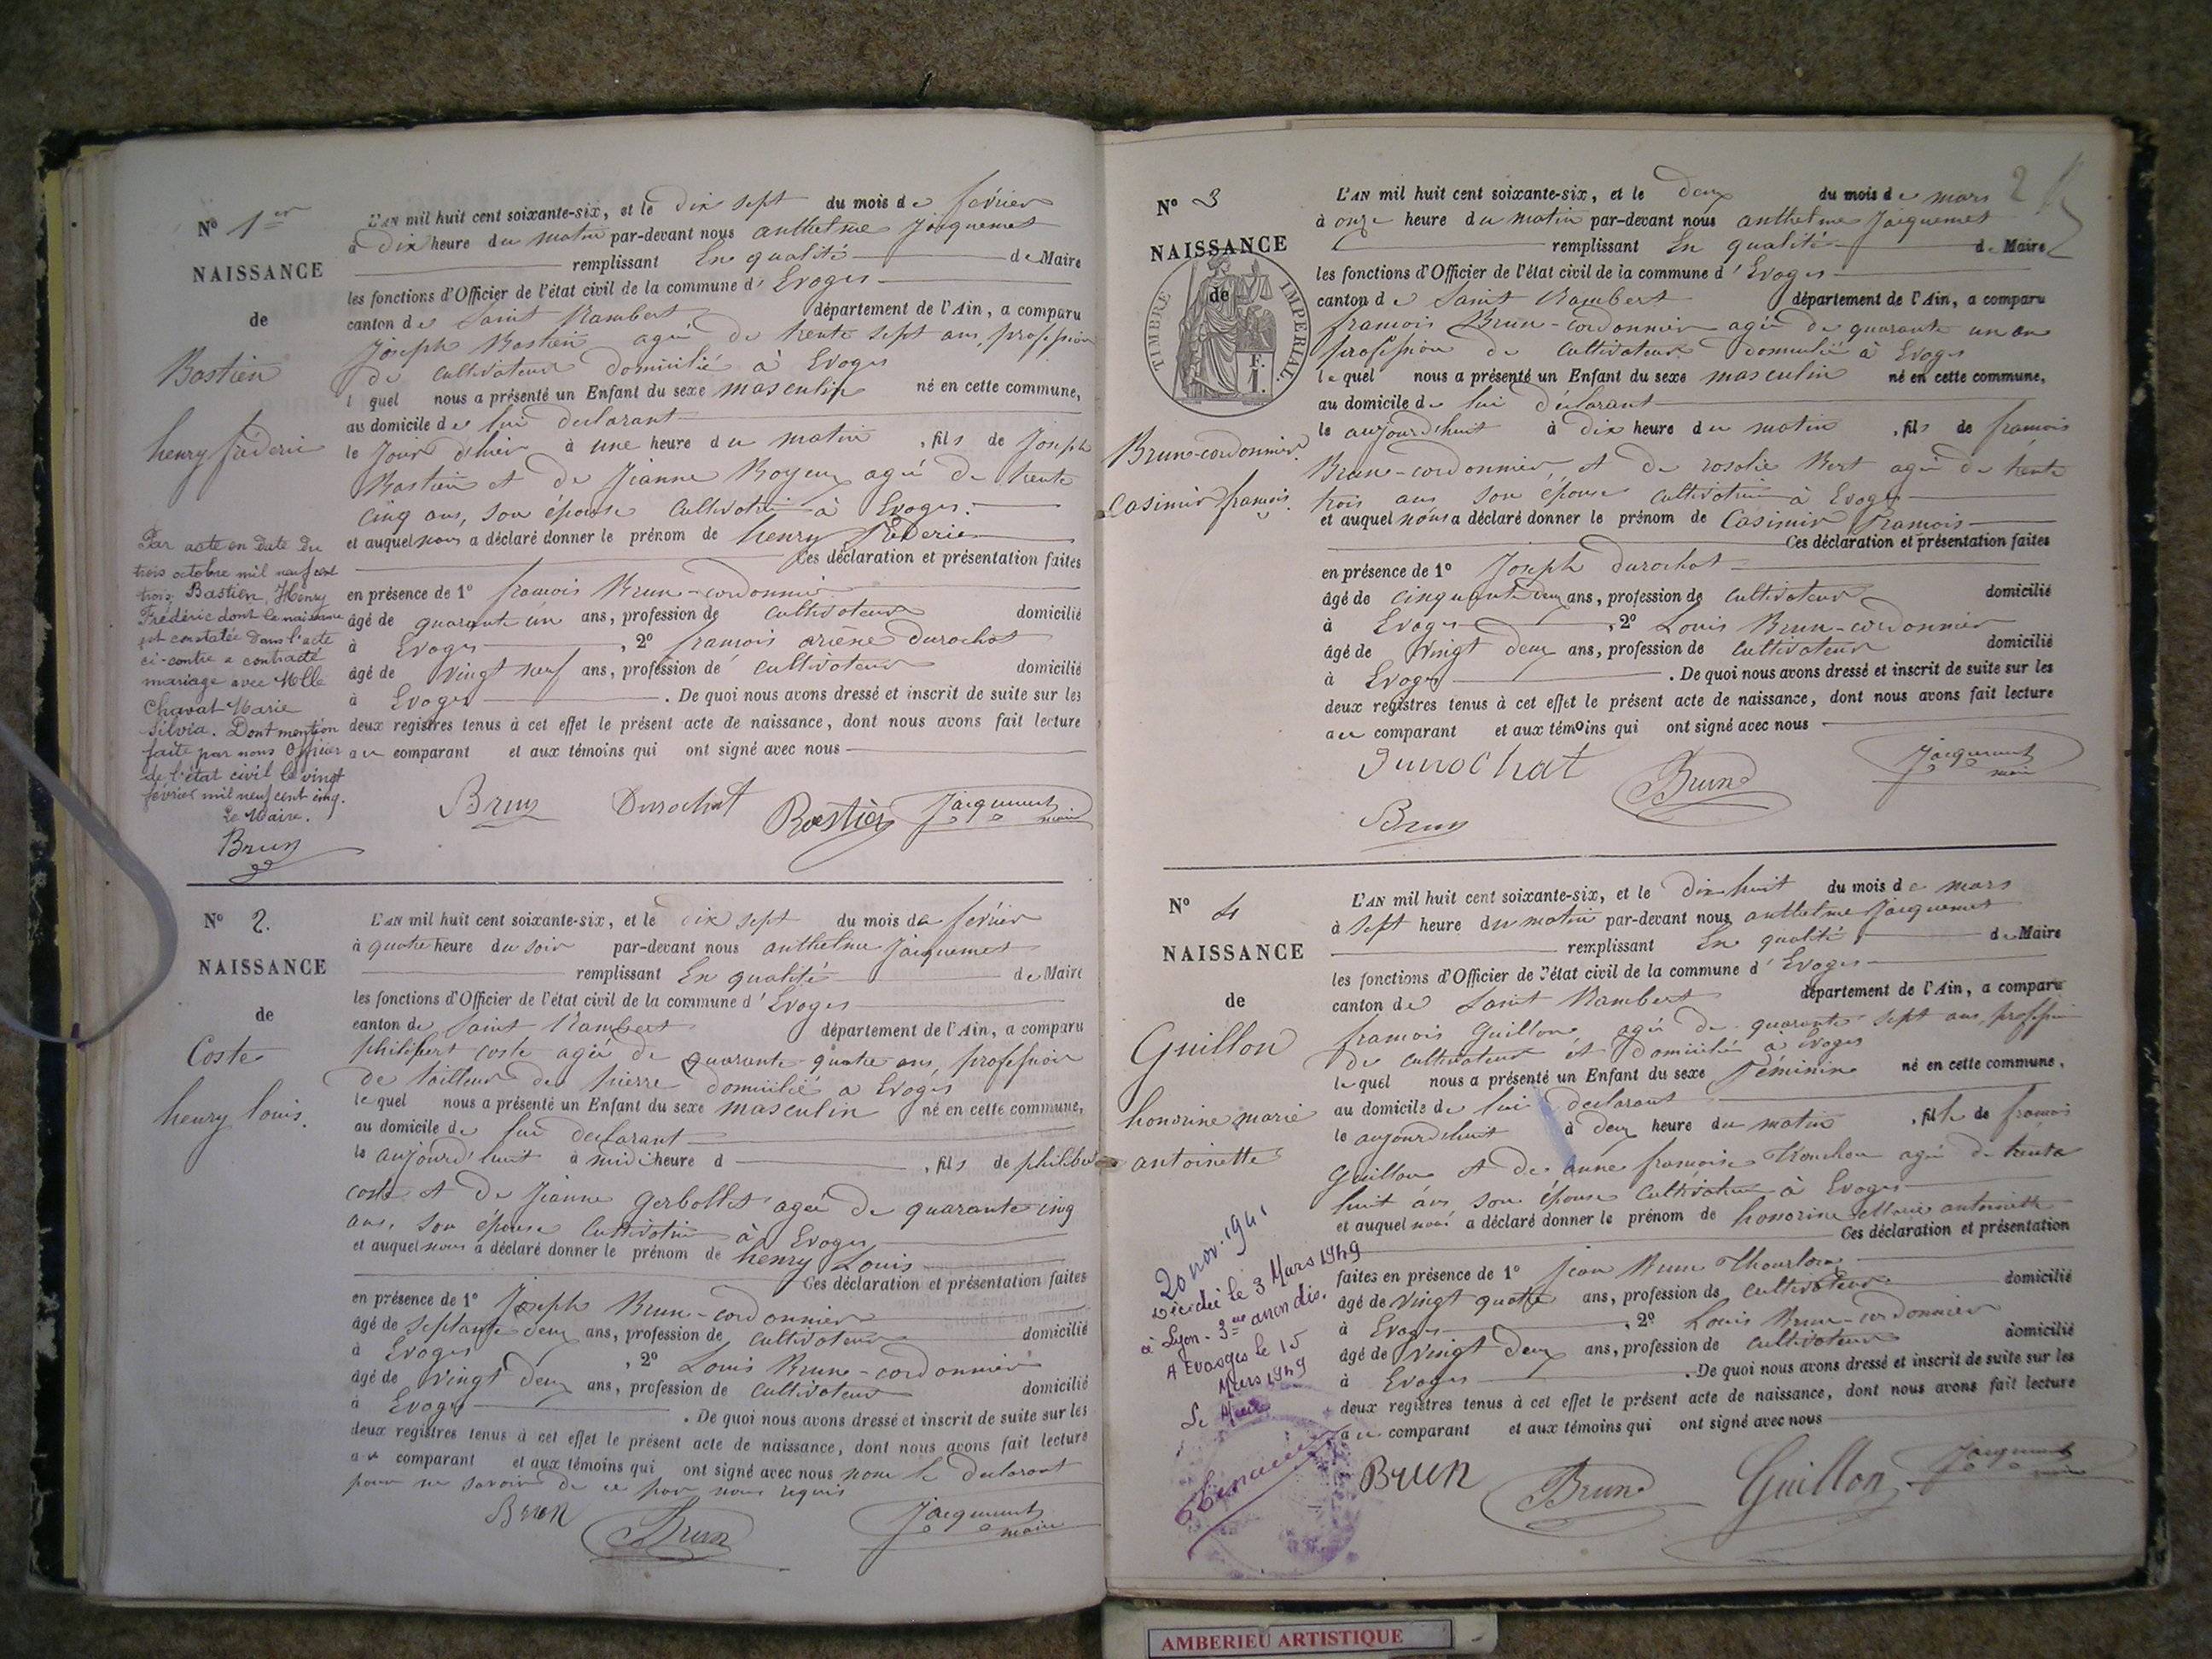 Nº 1er
NAISSANCE
de
Bastien
henry fréderic
L'AN mil huit cent soixante-six, et le dix sept du mois de fevrier
à Dix heure du matin par-devant nous anthelme Jacquemet
remplissant En qualité de Maire
les fonctions d'Officier de l'état civil de la commune d'Evoges
canton de Saint Rambert département de l'Ain, a comparu
Joseph Bastien agé de trente sept ans, profession
de cultivateur domicilié à Evoges
lequel nous a présenté un Enfant du sexe masculin né en cette commune,
au domicile de lui declarant
le Jour d'hier à une heure du matin, fils de Joseph
Bastien et de Jeanne Royeux agée de trente
cinq ans, son épouse Cultivatrice à Evoges.
et auquel nous a déclaré donner le prénom de henry fréderic
Ces déclaration et présentation faites
en présence de 1º francois Brun-cordonnier
âgé de quarante un ans, profession de cultivateur domicilié
à Evoges, 2º francois Durochat
âgé de vingt neuf ans, profession de cultivateur domicilié
à Evoges. De quoi nous avons dressé et inscrit de suite sur les
deux registres tenus à cet effet le présent acte de naissance, dont nous avons fait lecture
au comparant et aux témoins qui ont signé avec nous
Brun Durochat Bastien Jacquemet maire
Par acte en date du
trois octobre mil neuf cent
trois, Bastien, Henry
Frédéric dont la naissance
est constatée dans l'acte
ci-contre a contracté
mariage avec Melle
Chavat Marie
Silvia. Dont mention
faite par nous Officier
de l'état civil le vingt
février mil neuf cent cinq.
Le Maire.
Brun
Nº 2.
NAISSANCE
de
Coste
henry louis.
L'AN mil huit cent soixante-six, et le dix sept du mois de fevrier
à quatre heure du soir par-devant nous anthelme Jacquemet
remplissant En qualité de Maire
les fonctions d'Officier de l'état civil de la commune d'Evoges
canton de Saint Rambert département de l'Ain, a comparu
philibert coste agée de quarante quatre ans, profession
de tailleur de pierre domicilié a Evoges
lequel nous a présenté un Enfant du sexe masculin né en cette commune,
au domicile de lui declarant
le aujourd'huit à midi heure d, fils de philibert
coste et de Jeanne Gerbollet agée de quarante cinq
ans, son épouse Cultivatrice à Evoges
et auquel nous a déclaré donner le prénom de henry Louis
Ces déclaration et présentation faites
en présence de 1º Joseph Brun-cordonnier
âgé de septante deux ans, profession de cultivateur domicilié
à Evoges, 2º Louis Brun-cordonnier
âgé de vingt deux ans, profession de cultivateur domicilié
à Evoges. De quoi nous avons dressé et inscrit de suite sur les
deux registres tenus à cet effet le présent acte de naissance, dont nous avons fait lecture
au comparant et aux témoins qui ont signé avec nous non le declarant
pour ne savoir de ce par nous requis
Brun Brun Jacquemet maire
2
Nº 3
NAISSANCE
de
TIMBRE IMPERIAL.
F.
1.
Brun-cordonnier.
Casimir francois.
L'AN mil huit cent soixante-six, et le deux du mois de mars
à onze heure du matin par-devant nous anthelme Jacquemet
remplissant En qualité de Maire
les fonctions d'Officier de l'état civil de la commune d'Evoges
canton de Saint Rambert département de l'Ain, a comparu
francois Brun-cordonnier agée de quarante un an
profession de cultivateur domicilié à Evoges
lequel nous a présenté un Enfant du sexe masculin né en cette commune,
au domicile de lui déclarant
le aujourd'huit à dix heure du matin, fils de francois
Brun-cordonnier, et de rosalie Bert agée de trente
trois ans son épouse cultivatrice à Evoges
et auquel nous a déclaré donner le prénom de Casimir Francois
Ces déclaration et présentation faites
en présence de 1º Joseph Durochat
âgé de cinquante deux ans, profession de cultivateur domicilié
à Evoges, 2º Louis Brun-cordonnier
âgé de vingt deux ans, profession de cultivateur domicilié
à Evoges. De quoi nous avons dressé et inscrit de suite sur les
deux registres tenus à cet effet le présent acte de naissance, dont nous avons fait lecture
au comparant et aux témoins qui ont signé avec nous
Durochat Brun Jacquemet maire
Brun
Nº 4
NAISSANCE
de
Guillon
honorine marie
antoinette
L'AN mil huit cent soixante-six, et le dix huit du mois de mars
à sept heure du matin par-devant nous anthelme Jacquemet
remplissant En qualité de Maire
les fonctions d'Officier de l'état civil de la commune d'Evoges
canton de Saint Rambert département de l'Ain, a comparu
francois Guillon agée de quarante sept ans, profession
de cultivateur et domicilié a Evoges
lequel nous a présenté un Enfant du sexe féminin né en cette commune,
au domicile de lui declarant
le aujourd'huit à deux heure du matin, fille de francois
Guillon et de anne francoise Trouchon agée de trente
huit ans son épouse cultivatrice à Evoges
et auquel nous a déclaré donner le prénom de honorine Marie antoinette
Ces déclaration et présentation
faites en présence de 1º Jean Brun
âgé de vingt quatre ans, profession de cultivateur domicilié
à Evoges, 2º Louis Brun-cordonnier
âgé de vingt deux ans, profession de cultivateur domicilié
à Evoges. De quoi nous avons dressé et inscrit de suite sur les
deux registres tenus à cet effet le présent acte de naissance, dont nous avons fait lecture
au comparant et aux témoins qui ont signé avec nous
Brun Brun Guillon Jacquemet maire
20 nov. 1941
Décédée le 3 Mars 1949
à Lyon - 3me arrondis.
A Evosges le 15
Mars 1949
Le Maire
AMBERIEU ARTISTIQUE